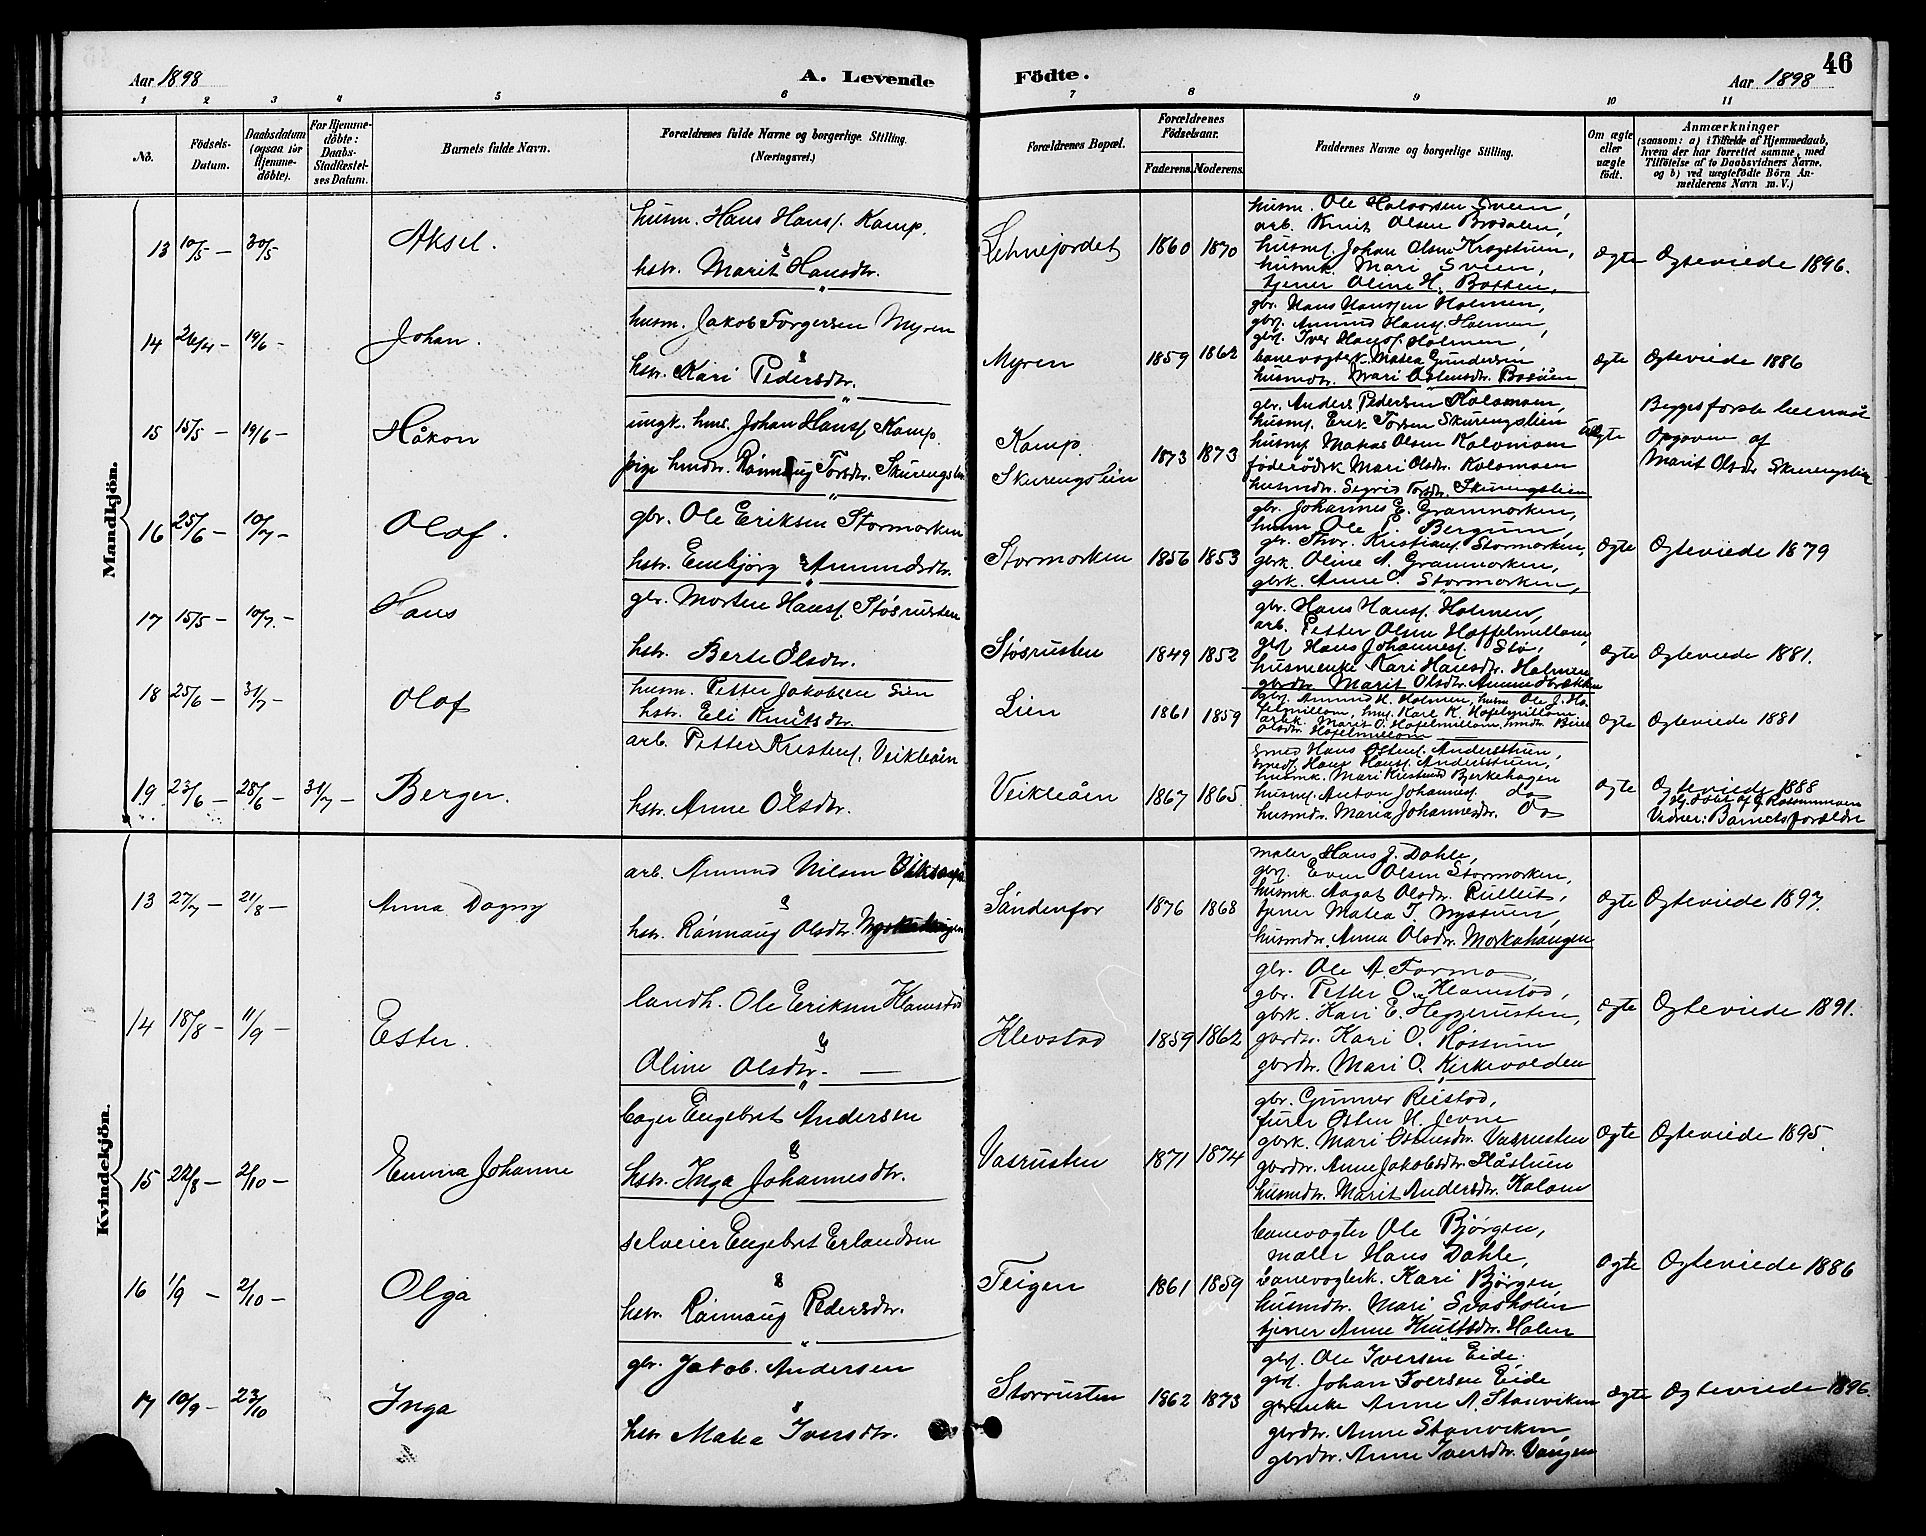 46
Aar 1898
A. Levende
Födte.
Aar 1898
1 2 3 4 5 6 7 8 9 10 11
No.
Födsels-Datum.
Daabsdatum (ogsaa for Hjemme-döbte).
For Hjemme-döbte: Daabs-Stadfæstel-ses Datum.
Barnets fulde Navn.
Forældrenes fulde Navne og borgerlige Stilling.
(Næringsvei.)
Forældrenes Bopæl.
Forældrenes Födselsaar.
Faderens. Moderens.
Faddernes Navne og borgerlige Stilling.
Om ægte eller uægte födt.
Anmærkninger
(saasom: a) i Tilfælde af Hjemmedaab, hvem der har forrettet samme, med Tilföielse af to Daabsvidners Navne. og b) ved uægtefödte Börn An-melderens Navn m. V.)
Mandkjön.
13 10/5 — 30/5
Aksel.
husm. Hans Hansf. Kamp.
&
hstr. Marit Hansdtr.
1860 1870
husm. Ole Halvorsen Sveen,
arb. Knut Olsen Brodalen,
husmf. Johan Olsen Krogstuen,
husmk. Mari Sveen,
tjener Oline H. Botten,
Ægte
Ægteviede 1896.
14 26/4 — 19/6 —
Johan.
husm. Jakob Torgersen Myren
&
hstr. Kari Pedersdtr.
Myren
1859 1862
gbr. Hans Hansen Holmen,
gbrf. Amund Hansf. Holmen,
gbf. Iver Hansf. Holmen,
banevogterk. Matea Gundersen
husmdtr. Mari Østensdtr.
ægte
Ægteviede 1886
15 15/5 — 19/6 —
Håkon
ungk. hms. Johan Hansf. Kamp.
pige hmdtr. Rønnaug Torsdtr. Skurengslien
Kamp.
Skurengslien
1873 1873
gbr. Anders Pedersen Kolomoen,
husmf. Erik Torsen Skurengslien
husmf. Matias Olsen Kolomoen
føderådsk Mari Olsdtr. Kolomoen
husmdtr. Sigrid Torsdtr. Skurengslien
Uægte
Begges første leiermål
Opgaven af
Marit Olsdtr Skurengslien
16 25/6 — 10/7 —
Olaf.
gbr. Ole Eriksen Stormorken
&
hstr. Embjørg Amundsdtr.
Stormorken
1856 1853
gbr. Johannes E. Granmorken,
husm Ole E. Bergum,
gbr. Thor. Kristians. Stormorken,
gbrk. Oline A. Granmorken,
gbrk. Anne O. Stormorken,
Ægte
Ægteviede 1879
17 15/5 — 10/7. —
Hans
gbr. Morten Hansf. Støsrusten
&
hstr. Berte Olsdtr.
Støsrusten
1849 1852
gbr. Hans Hansf. Holmen,
arb. Petter Olsen Hoffelmellom,
gbf. Hans Johannesf. Stø,
husmenke Kari Hansdtr. Holmen
gbrdtr. Marit Olsdtr. Amundbrekken
Ægte
Ægteviede 1881.
18 25/6 — 31/7 —
Olaf
husm. Petter Jakobsen Lien
&
hstr. Eli Knutsdtr.
Lien
1861 1859
gbrf. Amund H. Holmen, husm Ole J. Ho-
felmellom, hmf. Karl K. Hofelmellom
arbk. Marit O. Hofelmellom, hmdtr
Olsdtr. Hofelmellom
Ægte
Ægteviede 1881
19 23/6 — 28/6 — 31/7 —
Berger.
arb. Petter Kristenf. Veikleåen
&
hstr. Anne Olsdtr.
Veikleåen
1867 1865.
smed Hans Østenf. Andersstuen,
smedf. Hans Hansf. Andersstuen,
husmk. Mari Kristensd Berkehagen
husmf. Anton Johannesf. do
husmdr. Maria Johannesdtr. Do
Ægte
Ægteviede 1888
Vidner: Barnets forældre
Kvindekjön.
13 27/7 — 21/8 —
Anna Dagny
arb. Amund Nilsen
&
hstr. Rønnaug Olsdtr.
Sändenfor
1876 1868
maler Hans J. Dahle,
gbrf. Even Olsen Stormorken,
husmk. Aagot Olsdtr. Rulleit,
tjener Matea J. Nystuen,
husmdtr. Anna Olsdtr. Morkahaugen
Ægte
Ægteviede 1897.
14 18/8 — 11/9 —
Ester.
landh. Ole Eriksen Klomstad
&
Oline Olsdtr. —
Klevstad
1859 1862
gbr. Ole A. Formo
gbr. Petter O. Klomstad,
gbrk. Kari E. Heggerusten,
gbrdtr. Kari O. Rossum
gbrdtr. Mari O. Kirkevolden
Ægte
Ægteviede 1891.
15 22/8 — 2/10 —
Emma Johanne
bager Engebret Andersen
&
hstr. Inga Johannesdtr.
Vasrusten
1871 1874
gbr. Gunner Reistad,
furer Østen H. Jevne
gbrk. Mari Østensdtr. Vasrusten
gbrdtr. Anne Jakobsdtr Slåstuen
husmdtr. Marit Andersdtr. Kolom
Ægte
Ægteviede 1895.
16 1/9 — 2/10 —
Olga
selveier Engebret Erlandsen
&
hstr. Rønnaug Pedersdtr.
Teigen
1861 1859
banevogter Ole Bjørgen,
maler Hans Dahle,
banevogterk. Kari Bjørgen,
husmdtr. Mari Svasholen
tjener Anne Knutsdtr. Holen
Ægte
Ægteviede 1886
17 10/9 — 23/10
Inga
gbr. Jakob. Andersen
&
hstr Matea Iversdtr.
Storrusten
1862 1873
gbf. Ole Iversen Eide.
gbf. Johan Iversen Eide
gbrenke Anne A. Stanviken
gbrdtr. Anne Stanviken,
gbrdtr. Anne Iversdtr. Vangen
Ægte
Ægteviede 1896.